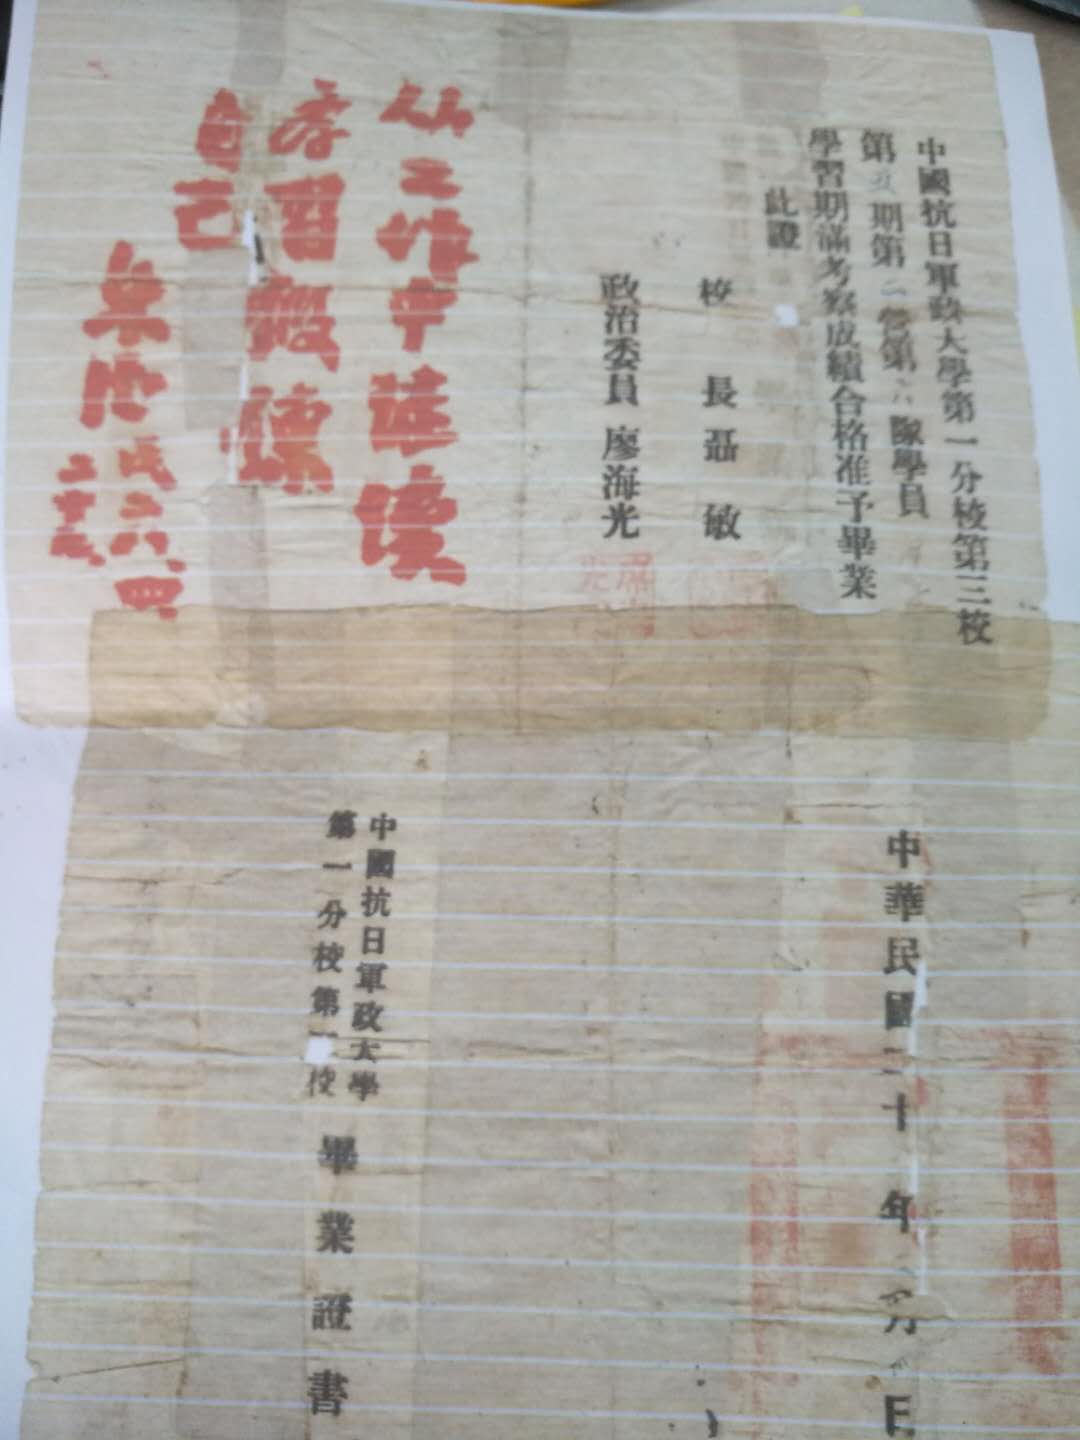 中國抗日軍政大學第一分校第三校
第五期第二營第六隊學員
學習期滿考察成績合格准予畢業
此證
校長聶敏
政治委員廖海光
從工作中繼續
學習鍛鍊
自己
民二八、四
中華民國二十年月日
中國抗日軍政大學
第一分校第校
畢業證書